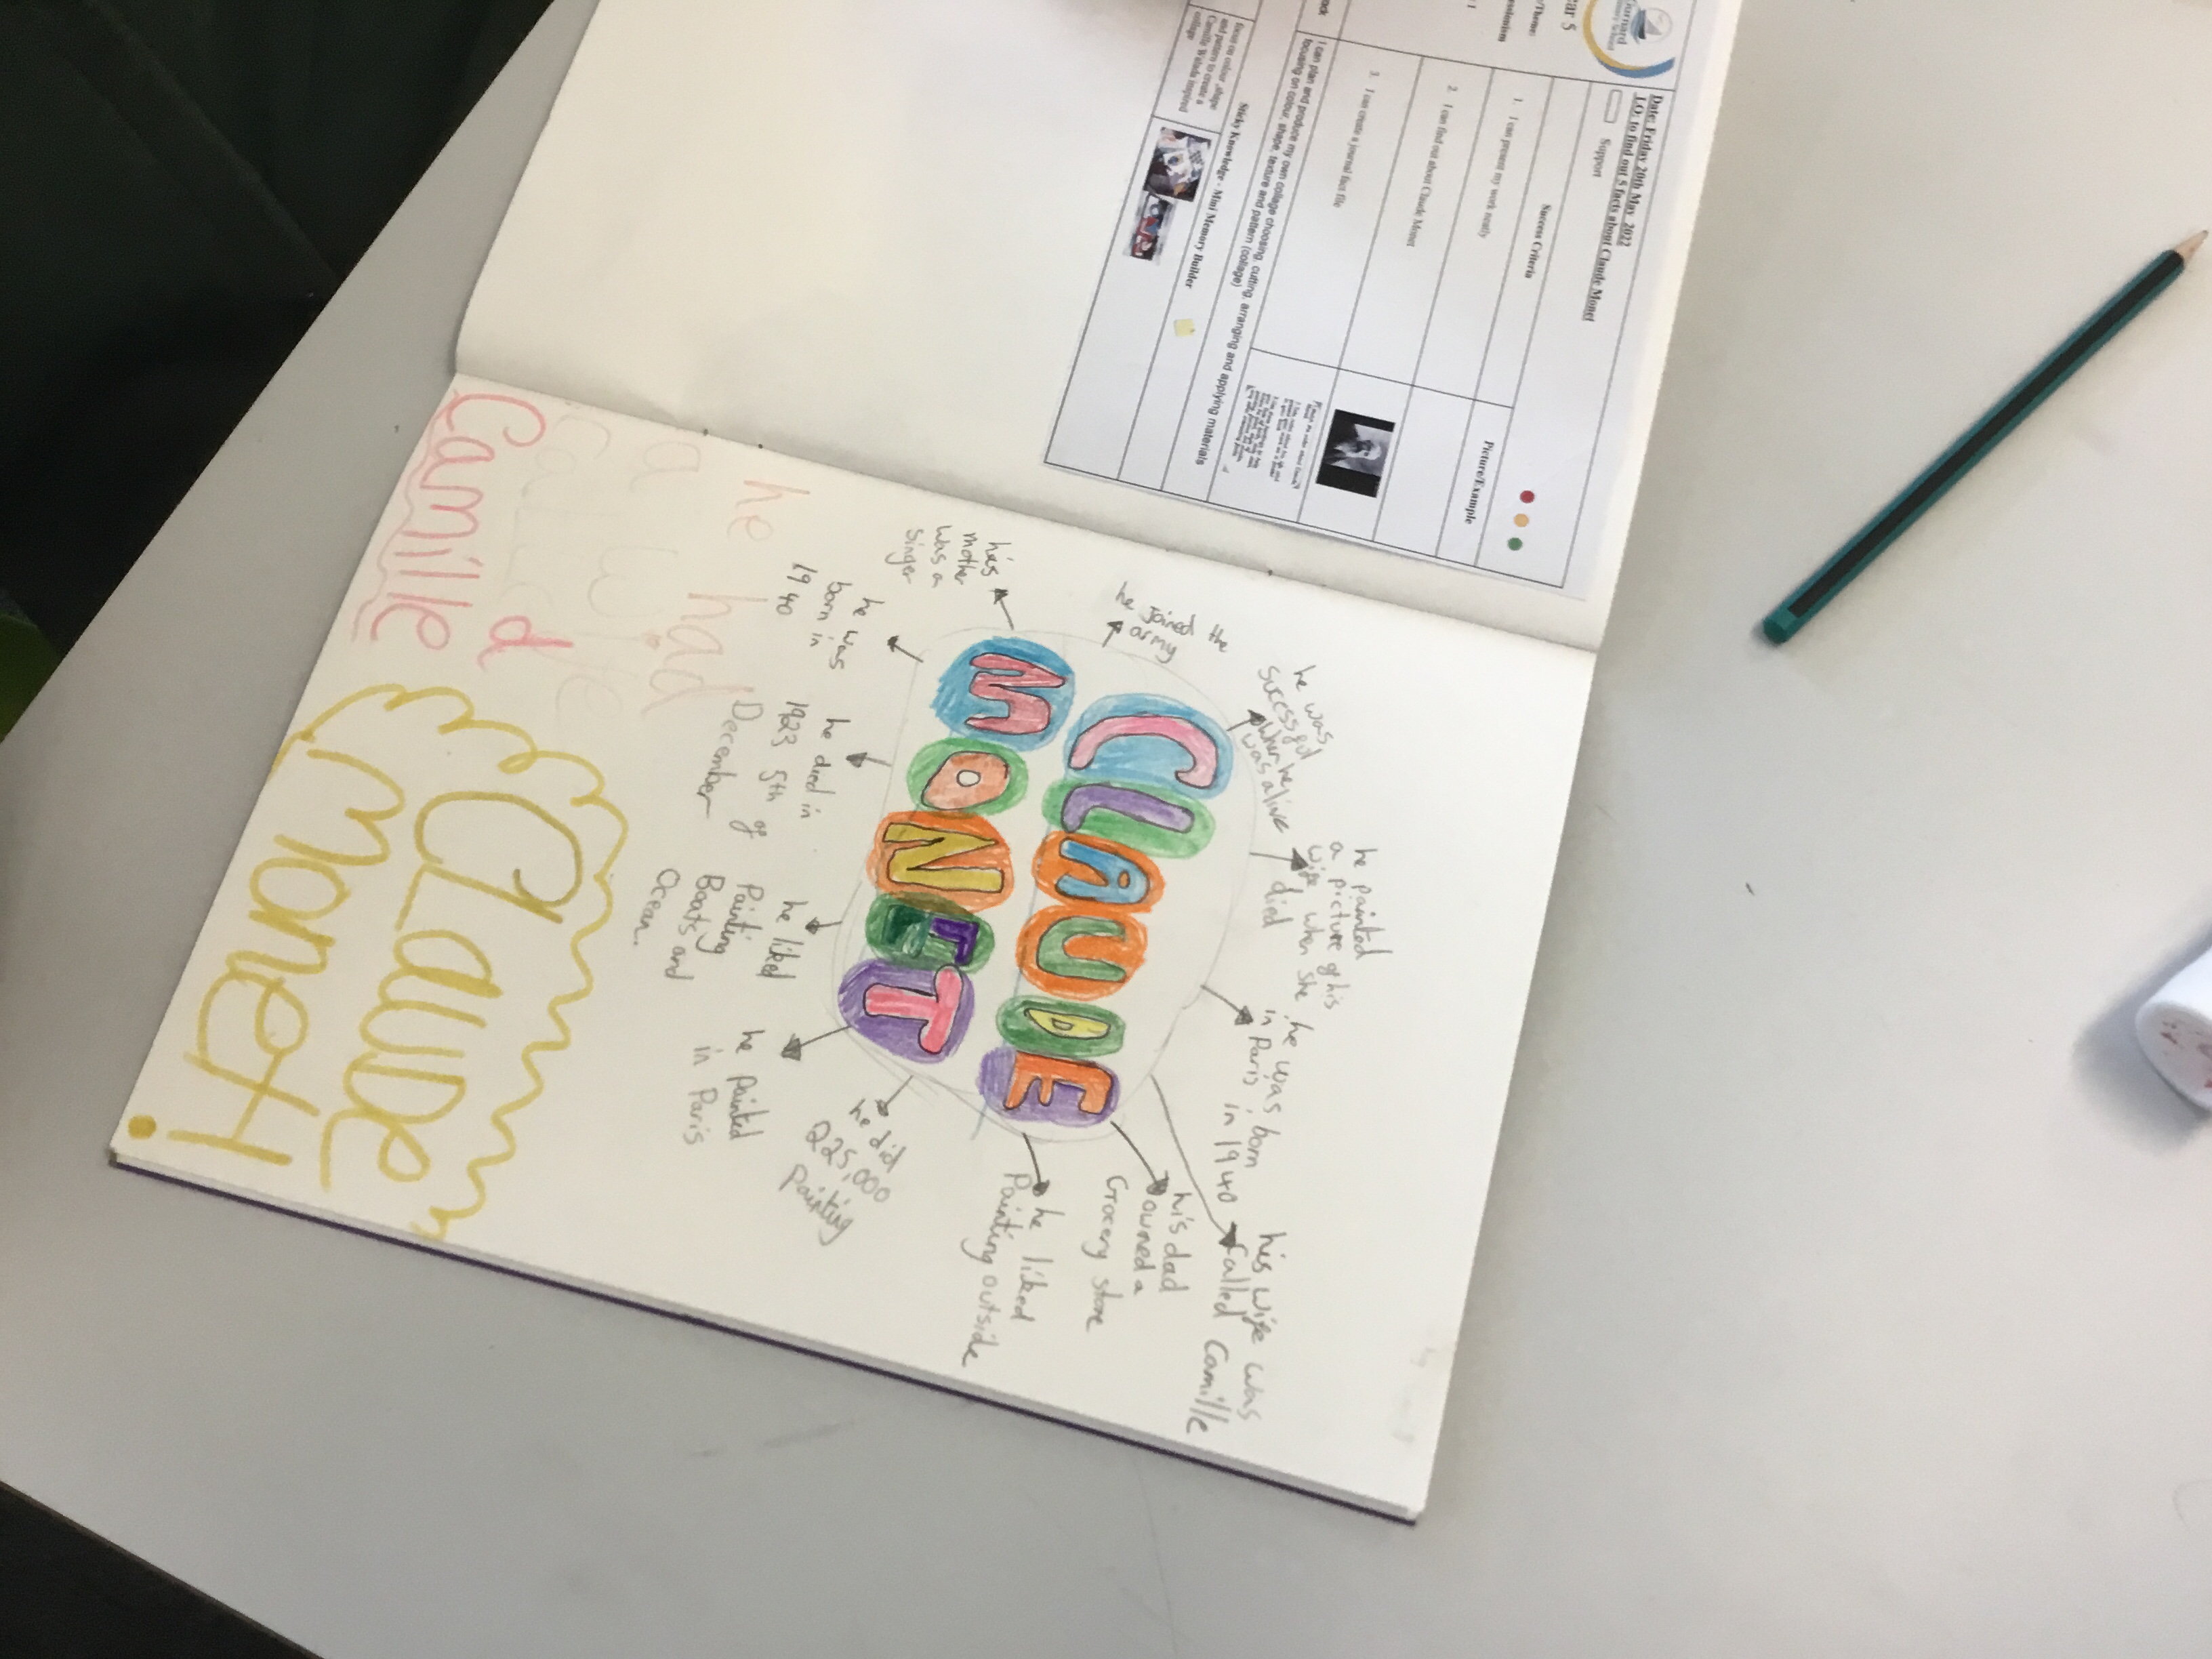 ear 5
Date: Friday 20th May 2022
LO: to find out 5 facts about Claude Monet
Support
Success Criteria
Picture/Example
1. I can present my work neatly
2. I can find out about Claude Monet
3. I can create a journal fact file
I can plan and produce my own collage choosing, cutting, arranging and applying materials
focusing on colour, shape, texture and pattern (collage)
Sticky Knowledge - Mini Memory Builder
he joined the
army
he was
sucessful
when he
was alive
he painted
a picture of his
wife when she
died
he was born
in Paris in 1940
his wife was
called Camille
his dad
owned a
Grocery store
he liked
Painting outside
he did
225,000
painting
he painted
in Paris
he liked
Painting
Boats and
Ocean.
he died in
1923 5th of
December
he was
born in
1940
he's
mother
was a
singer
CLAUDE
MONET
he had
a wife
called
Camille
Claude
Monet